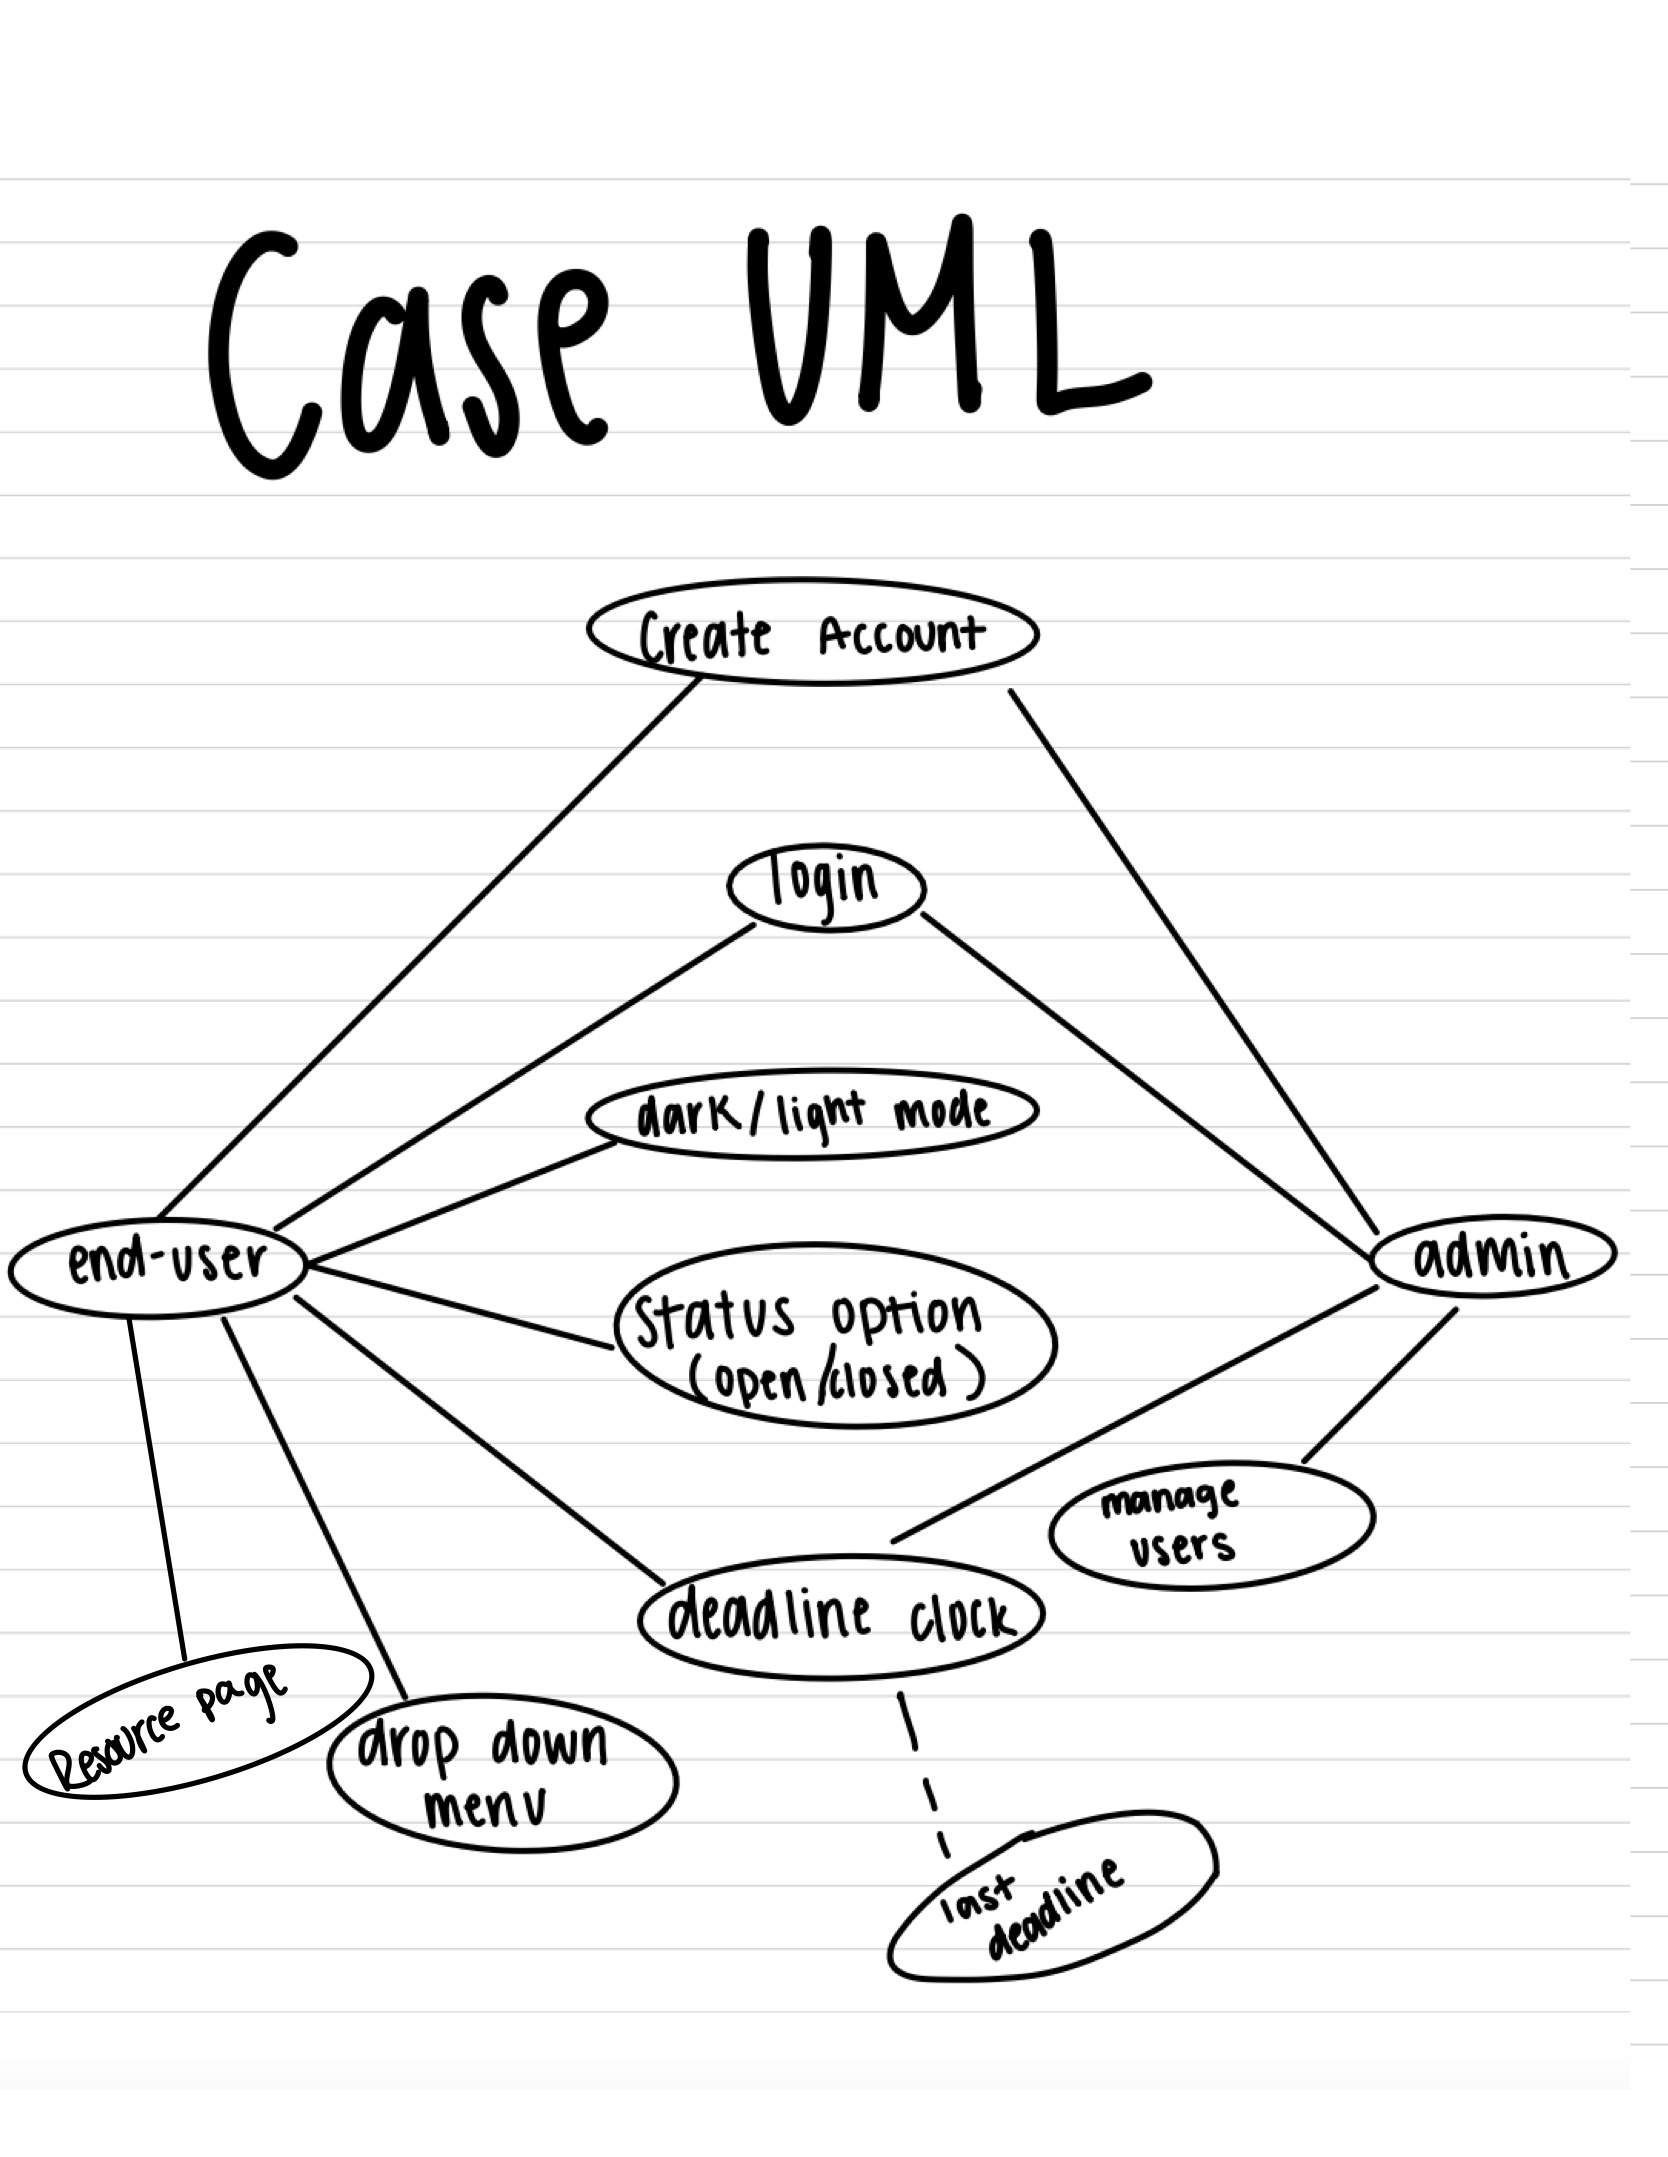 Case UML
Create Account
login
dark/light mode
end-user
admin
status option
(open/closed)
manage
users
deadline clock
Resource page
drop down
menu
last
deadline